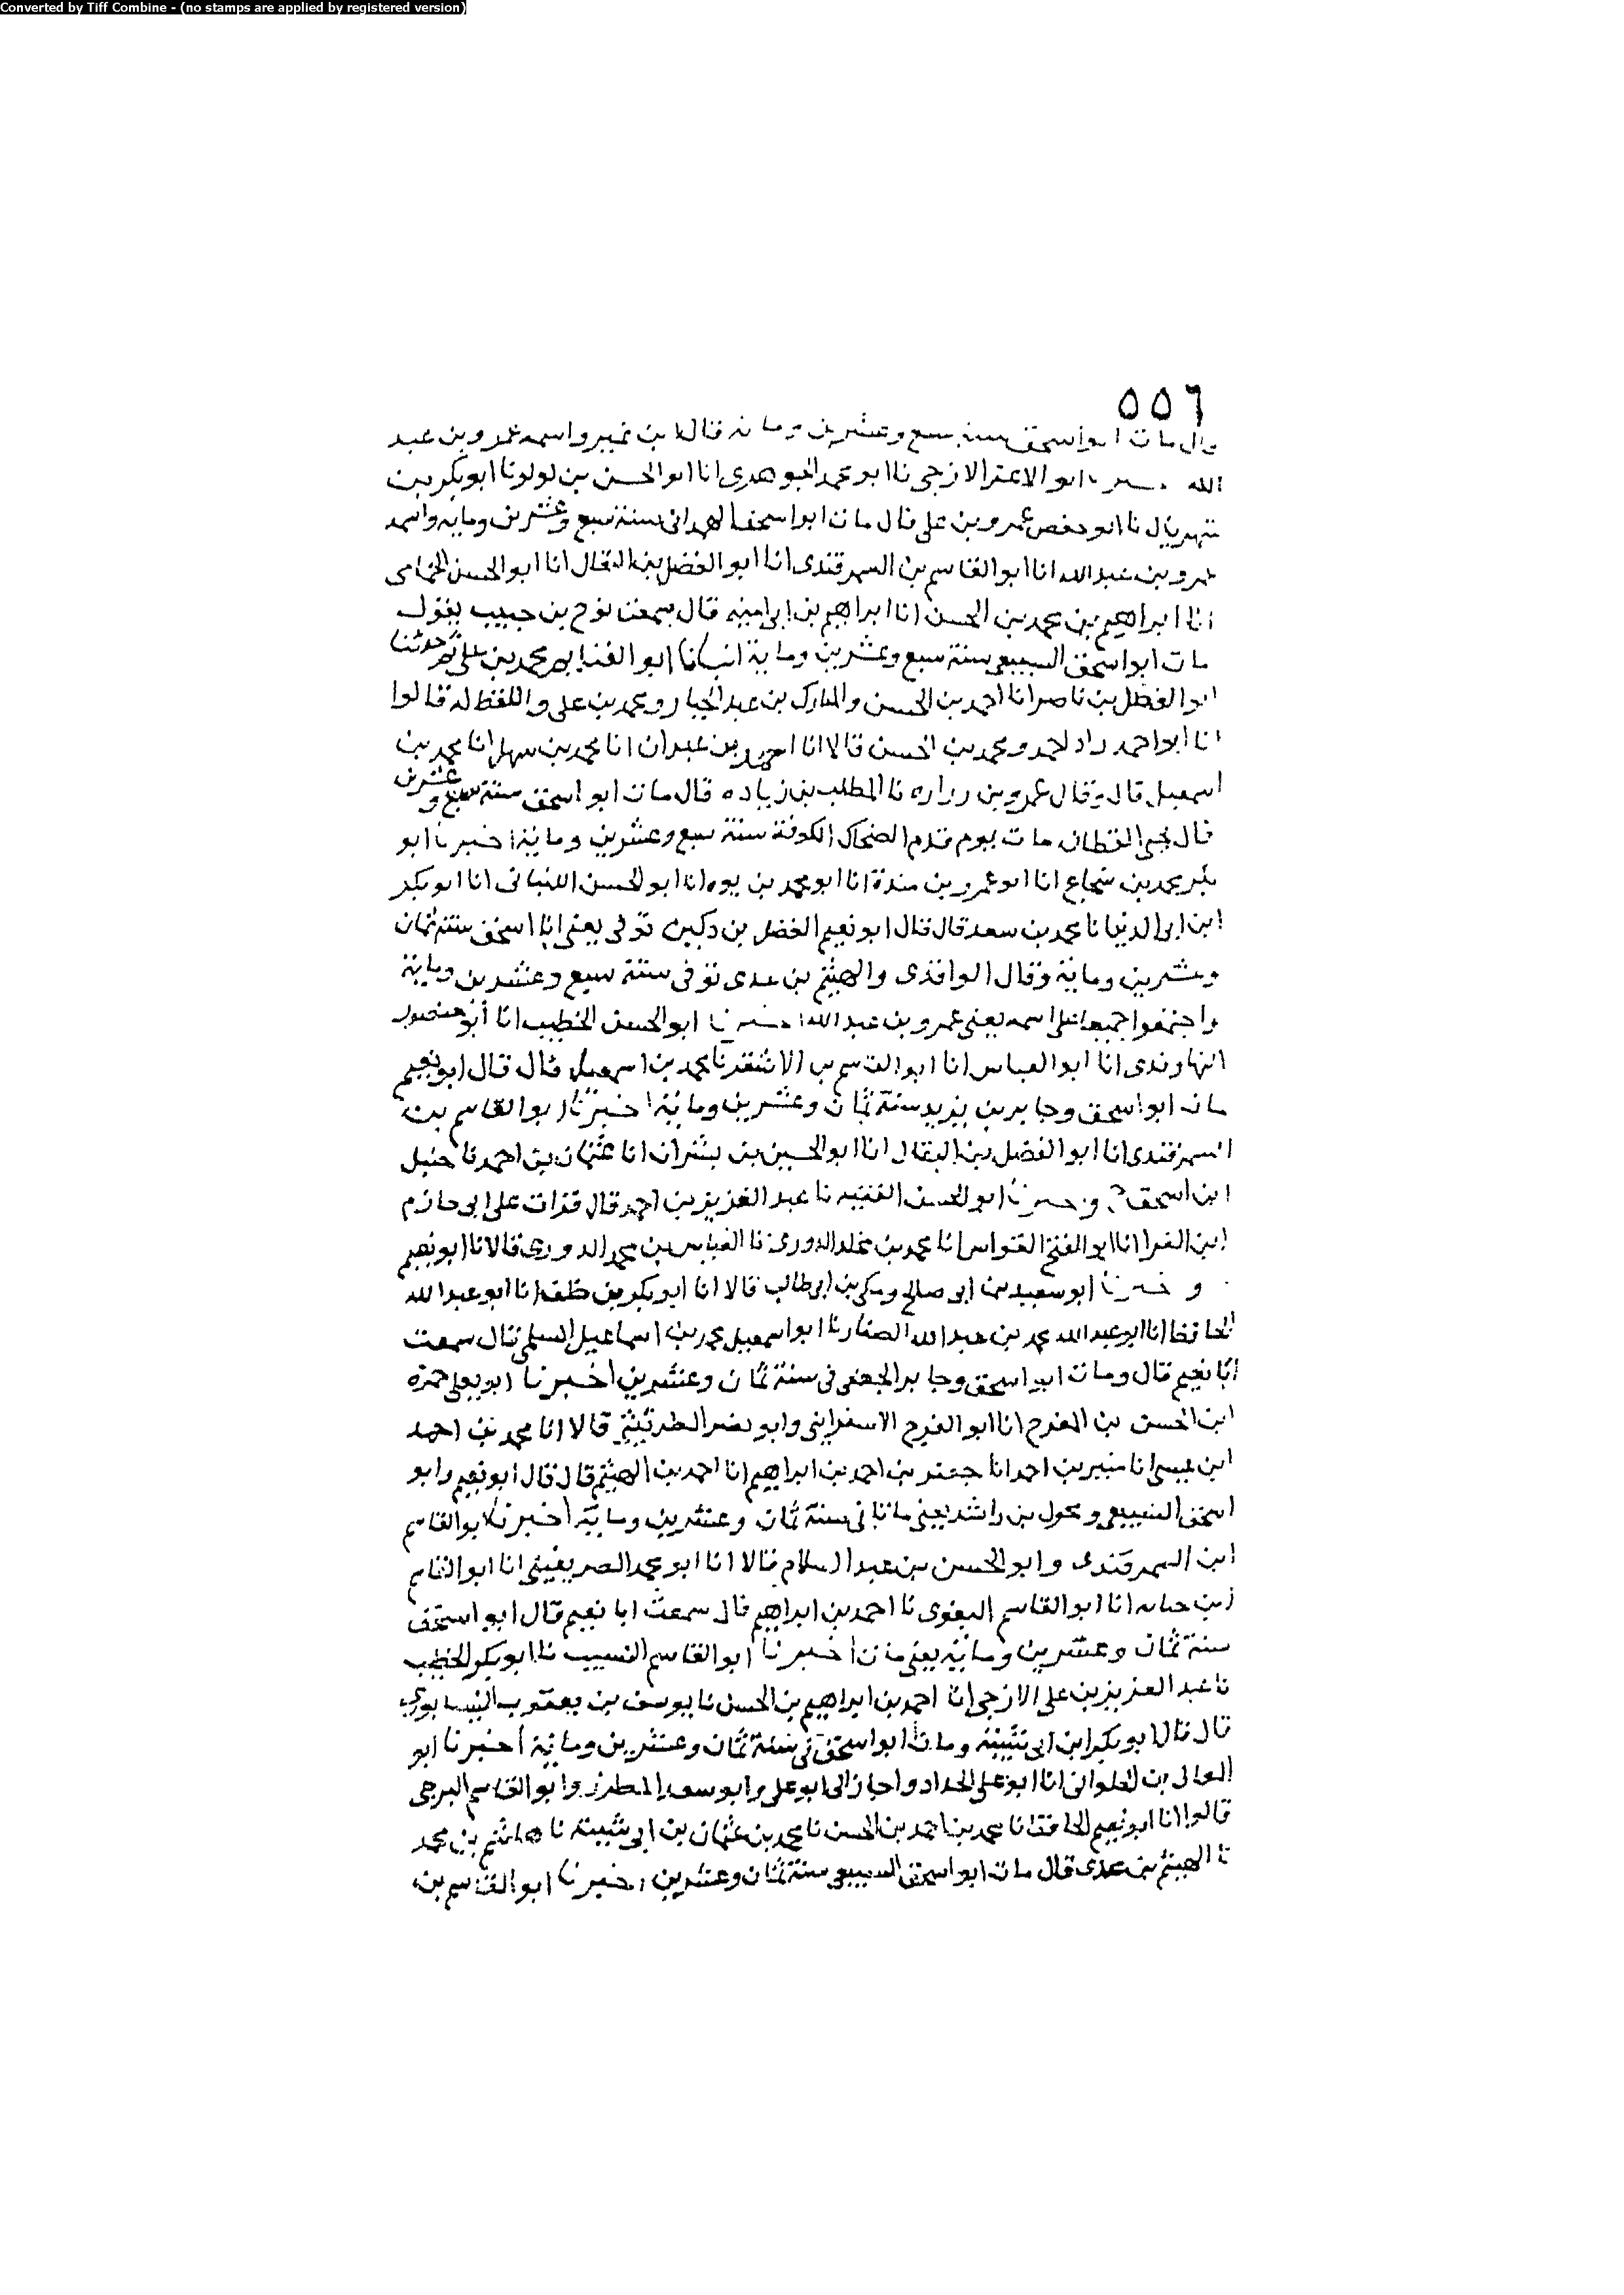 Converted by Tiff Combine - (no stamps are applied by registered version)
٥٥٦
قال مات ابو اسحق سنة سبع وعشرين وماىة قال ابن نمير واسمه عمرو بن عبد
الله ابو الاعز الازجى نا ابو محمد الجوهرى انا ابو الحسن بن لولو نا ابو بكر بن
شهريال نا ابو حفص عمرو بن على قال مات ابو اسحق الهمدانى سنة سبع وعشرين ومايه واسمه
عمرو بن عبد الله انا ابو القاسم بن السمرقندى انا ابو الفضل بن البقال انا ابو الحسن الحمامى
انا ابراهيم بن محمد بن الحسن انا ابراهيم بن ابى اميه قال سمعت نوح بن حبيب يقول
مات ابو اسحق السبيعى سنة سبع وعشرين وماية انبانا ابو الغنايم محمد بن على ثم حدثنا
ابو الفضل بن ناصر انا احمد بن الحسن والمبارك بن عبد الجبار ومحمد بن على واللفظ له قالوا
انا ابو احمد زاد احمد ومحمد بن الحسن قالا انا احمد بن عبدان انا محمد بن سهل انا محمد بن
اسمعيل قال وقال عمرو بن زراره نا المطلب بن زياده قال مات ابو اسحق سنة سبع وعشرين
قال يحيى القطان مات يوم قدم الضحاك الكوفة سنة سبع وعشرين وماية اخبرنا ابو
بكر محمد بن شجاع انا ابو عمرو بن مندة انا ابو محمد بن يوه انا ابو الحسن اللنبانى انا ابو بكر
ابن ابى الدنيا نا محمد بن سعد قال قال ابو نعيم الفضل بن دكين توفى يعنى ابا اسحق سنة ثمان
وعشرين وماية وقال الواقدى والهيثم بن عدى توفى سنة سبع وعشرين وماية
واجتمعوا جميعا على اسمه يعنى عمرو بن عبد الله اخبرنا ابو الحسن الخطيب انا ابو منصور
النهاوندى انا ابو العباس انا ابو القاسم بن الاشقر نا محمد بن اسمعيل قال قال ابو نعيم
مات ابو اسحق وجابر بن يزيد سنة ثمان وعشرين وماية اخبرنا ابو القاسم بن
السمرقندى انا ابو الفضل بن البقال انا ابو الحسين بن بشران انا عثمان بن احمد نا حنبل
ابن اسحق ح واخبرنا ابو الحسن الفقيه نا عبد العزيز بن احمد قال قرات على ابى حازم
ابن الفرا انا ابو الفتح القواس انا محمد بن مخلد الدورى نا العباس بن محمد الدورى قالا نا ابو نعيم
و خبرنا ابو سعيد بن ابى صالح ومكى بن ابى طالب قالا انا ابو بكر بن خلف انا ابو عبد الله
الحافظ انا ابو عبد الله محمد بن عبد الله الصفار نا ابو اسمعيل محمد بن اسماعيل السلمى قال سمعت
ابا نعيم قال ومات ابو اسحق وجابر الجعفى فى سنة ثمان وعشرين اخبرنا ابو يعلى حمزه
ابن الحسن بن المفرج انا ابو الفرج الاسفراينى وابو نصر الطريثيثى قالا انا محمد بن احمد
ابن عيسى انا منير بن احمد انا جعفر بن احمد بن ابراهيم انا احمد بن الهيثم قال قال ابو نعيم وابو
اسحق السبيعى ومخول بن راشد يعنى ماتا فى سنة ثمان وعشرين وماية اخبرنا ابو القاسم
ابن السمرقندى وابو الحسن بن عبد السلام قالا انا ابو محمد الصريفينى انا ابو القاسم
ابن حبابه انا ابو القاسم البغوى نا احمد بن ابراهيم قال سمعت ابا نعيم قال ابو اسحق
سنة ثمان وعشرين وماية يعنى مات اخبرنا ابو القاسم النسيب نا ابو بكر الخطيب
نا عبد العزيز بن على الازجى انا احمد بن ابراهيم بن الحسن نا يوسف بن يعقوب النيسابورى
قال قال ابو بكر ابن ابى شيبة ومات ابو اسحق فى سنة ثمان وعشرين وماية اخبرنا ابو
المعالى بن الحلوانى انا ابو على الحداد واجاز لى ابو على وابو سعد المطرز وابو القاسم البرجى
قالوا انا ابو نعيم الحافظ نا محمد بن احمد بن الحسن نا محمد بن عثمان بن ابى شيبة نا هاشم بن محمد
نا الهيثم بن عدى قال مات ابو اسحق السبيعى سنة ثمان وعشرين اخبرنا ابو القاسم بن